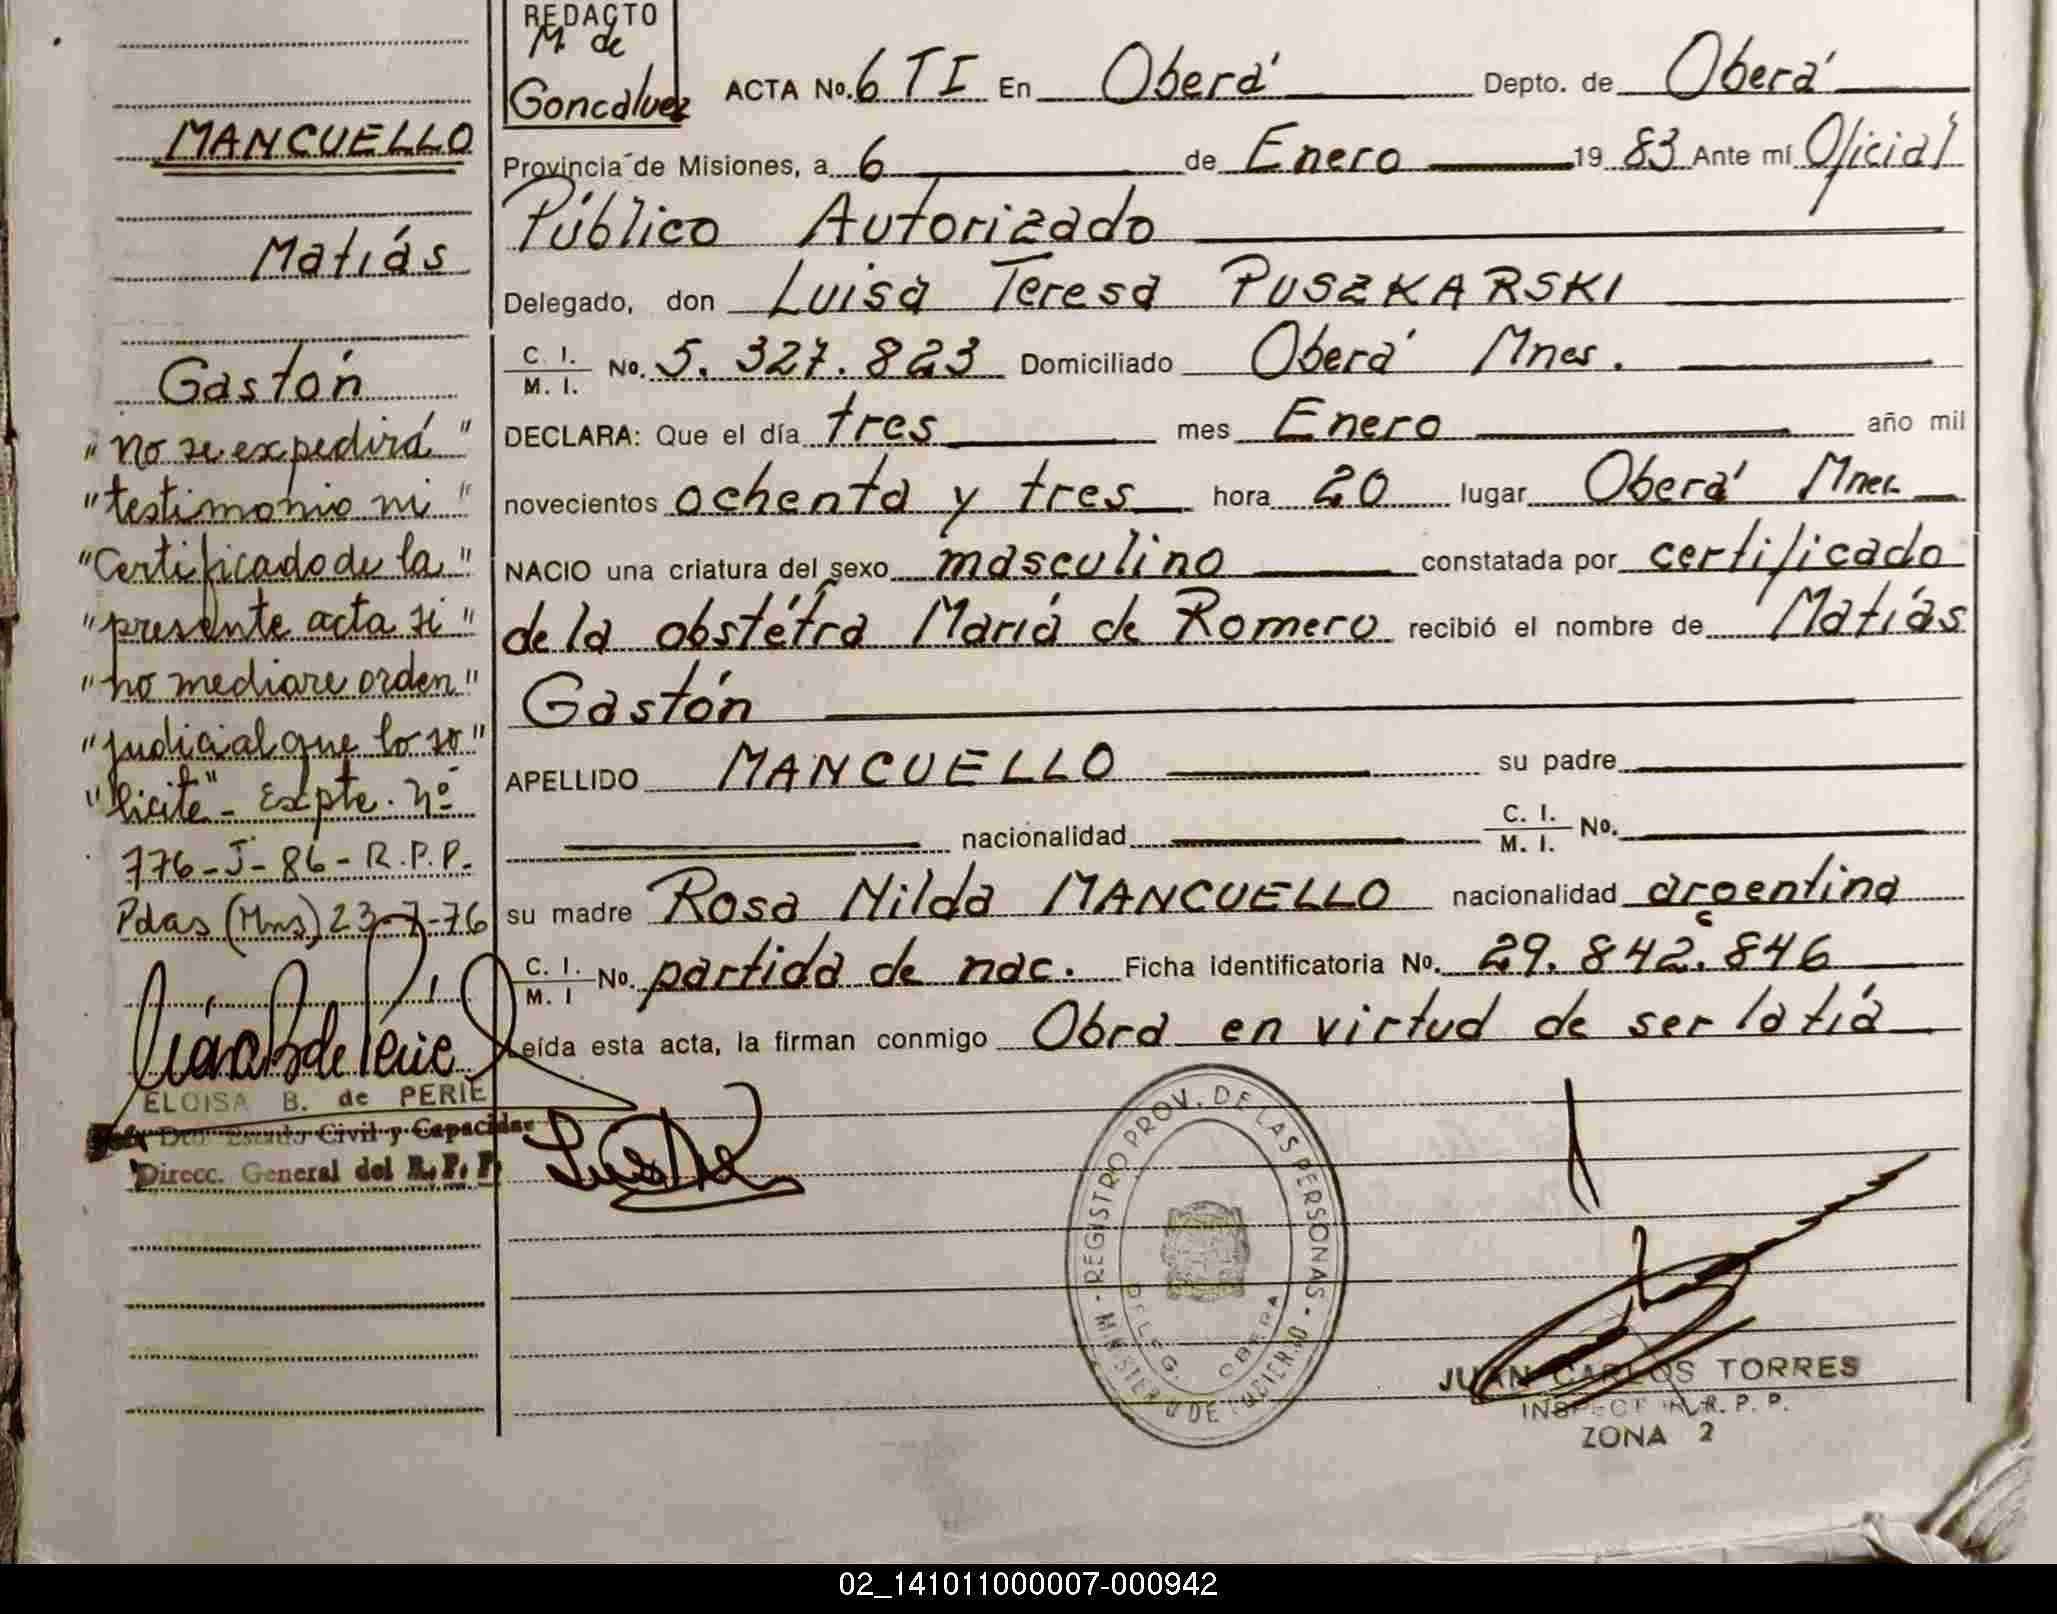 REDACTO
M. de
Goncalvez
MANCUELLO
Matiás
Gastón
"No se expedirá"
"testimonio ni"
"Certificado de la"
"presente acta si"
"no mediare orden"
"judicial que lo so"
"licite"- Expte. Nº
776-J-86-R.P.P.
Pdas (Mns) 23-7-76
ELOISA B. de PERIE
Dto Estado Civil y Capacidad
Direcc. General del R. P. P.
ACTA No. 6 TI En Oberá Depto. de Oberá
Provincia de Misiones, a 6 de Enero 19 83 Ante mí Oficial
Público Autorizado
Delegado, don Luisa Teresa PUSZKARSKI
C. I. / M. I. No. 5.327.823 Domiciliado Oberá Mnes.
DECLARA: Que el día tres mes Enero año mil
novecientos ochenta y tres hora 20 lugar Oberá Mnes.
NACIO una criatura del sexo masculino constatada por certificado
de la obstétra Mariá de Romero recibió el nombre de Matiás
Gastón
APELLIDO MANCUELLO su padre
nacionalidad C. I. / M. I. No.
su madre Rosa Nilda MANCUELLO nacionalidad argentina
C. I. / M. I No. partida de nac. Ficha identificatoria No. 29.842.846
Leída esta acta, la firman conmigo Obra en virtud de ser la tiá
REGISTRO PROV. DE LAS PERSONAS
MINISTERIO DE GOBIERNO
DELEG. OBERA
JUAN CARLOS TORRES
INSPECTOR R. P. P.
ZONA 2
02_141011000007-000942